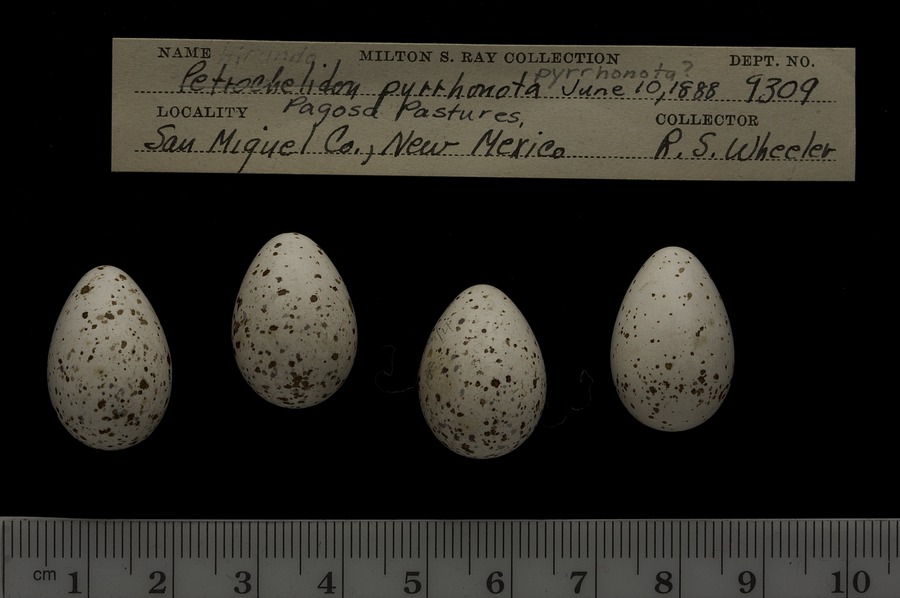 NAME hirundo MILTON S. RAY COLLECTION DEPT. NO.
pyrrhonota?
Petrochelidon pyrrhonota June 10, 1888 9309
LOCALITY Pagosa Pastures, COLLECTOR
San Miguel Co., New Mexico R. S. Wheeler
cm 1 2 3 4 5 6 7 8 9 10